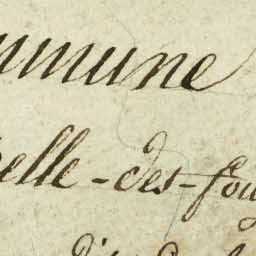 mmune
elle-des-fou